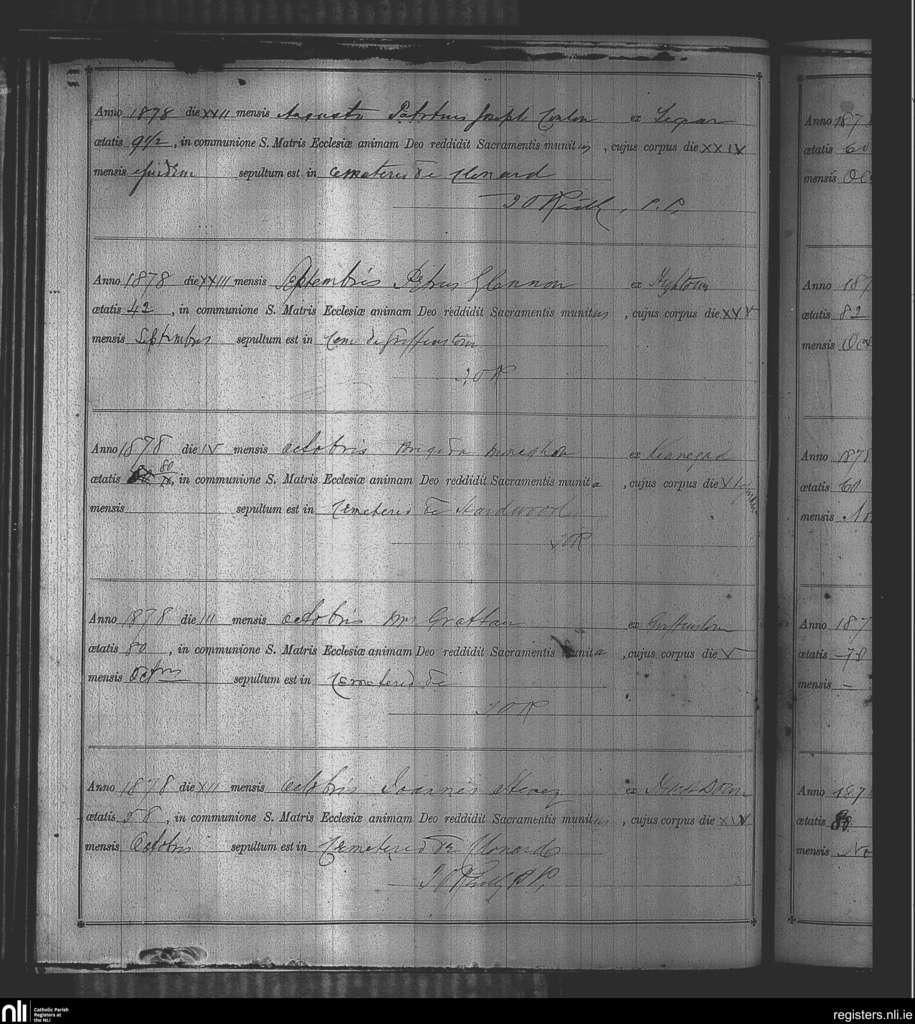 Anno 1878 die XXII mensis Augusti Patritius Joseph Conlon ex
ætatis 9 1/2, in communione S. Matris Ecclesiæ animam Deo reddidit Sacramentis munitus, cujus corpus die XXIV
mensis ejusdem sepultum est in Cemeterio de Clonard
P.P.
Anno 1878 die XXIII mensis Septembris Petrus Glennon ex
ætatis 42, in communione S. Matris Ecclesiæ animam Deo reddidit Sacramentis munitus, cujus corpus die XXV
mensis Septembris sepultum est in Cem de Griffinstown
J O R
Anno 1878 die IV mensis Octobris Brigida ex Kinnegad
ætatis 80, in communione S. Matris Ecclesiæ animam Deo reddidit Sacramentis munita, cujus corpus die
mensis sepultum est in Cemeterio de Hardwood
J O R
Anno 1878 die III mensis Octobris Grattan ex Griffinstown
ætatis 80, in communione S. Matris Ecclesiæ animam Deo reddidit Sacramentis munita, cujus corpus die V
mensis Octris sepultum est in Cemeterio de
J O R
Anno 1878 die XII mensis Octobris Joannes ex
ætatis 58, in communione S. Matris Ecclesiæ animam Deo reddidit Sacramentis munitus, cujus corpus die XIV
mensis Octobris sepultum est in Cemeterio de Clonard
P.P.
Anno 187
ætatis 60
mensis Oc
Anno 187
ætatis 82
mensis Oct
Anno 1878
ætatis 60
mensis No
Anno 187
ætatis 78
mensis
Anno 187
ætatis 80
mensis No
nli Catholic Parish
Registers at
the NLI
registers.nli.ie